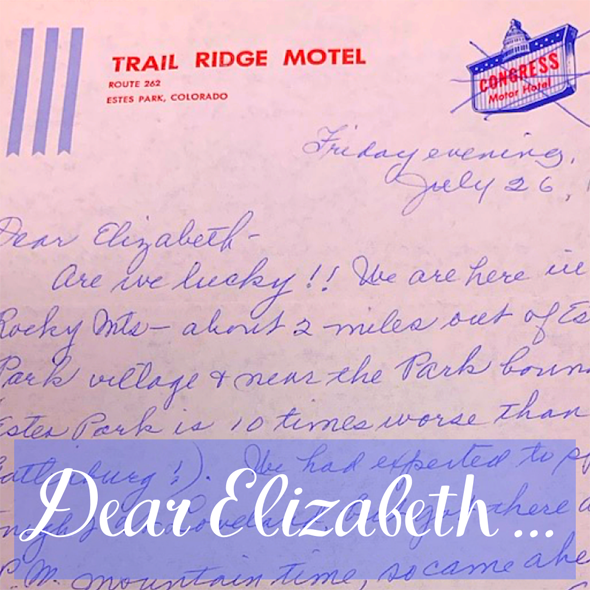 TRAIL RIDGE MOTEL
ROUTE 262
ESTES PARK, COLORADO
CONGRESS
Motor Hotel
Friday evening,
July 26,
Dear Elizabeth-
Are we lucky!! We are here in
Rocky Mts- about 2 miles out of Es
Park village & near the Park boun
Estes Park is 10 times worse than
Gatlinburg!). We had expected to
Dear Elizabeth ...
P.M. mountain time, so came ahe